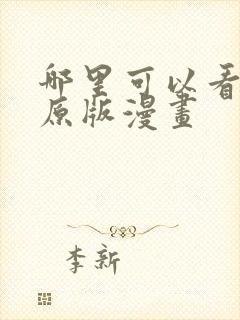 哪里可以看
原版漫畫
李新